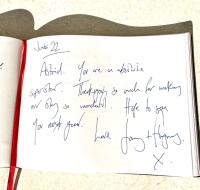 June 22
Astrid. You are an absolute
superstar. Thank you so much for making
our stay so wonderful. Hope to see
you next year.
Love
X.